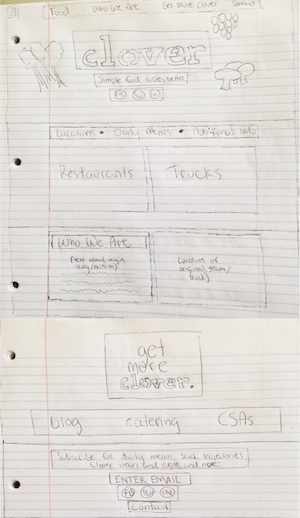 Food Who We Are Get More Clover Contact
clover
Simple food tastes better
FB TW IN
Locations • Daily Menus • Nutritional Info
Restaurants Trucks
Who We Are
(text about origin story/mission)
(picture of
original team/
truck)
get
more
clover.
blog catering CSAs
Subscribe for daily menus, truck trajectories,
clover news and events and more.
ENTER EMAIL
FB TW IN
Contact